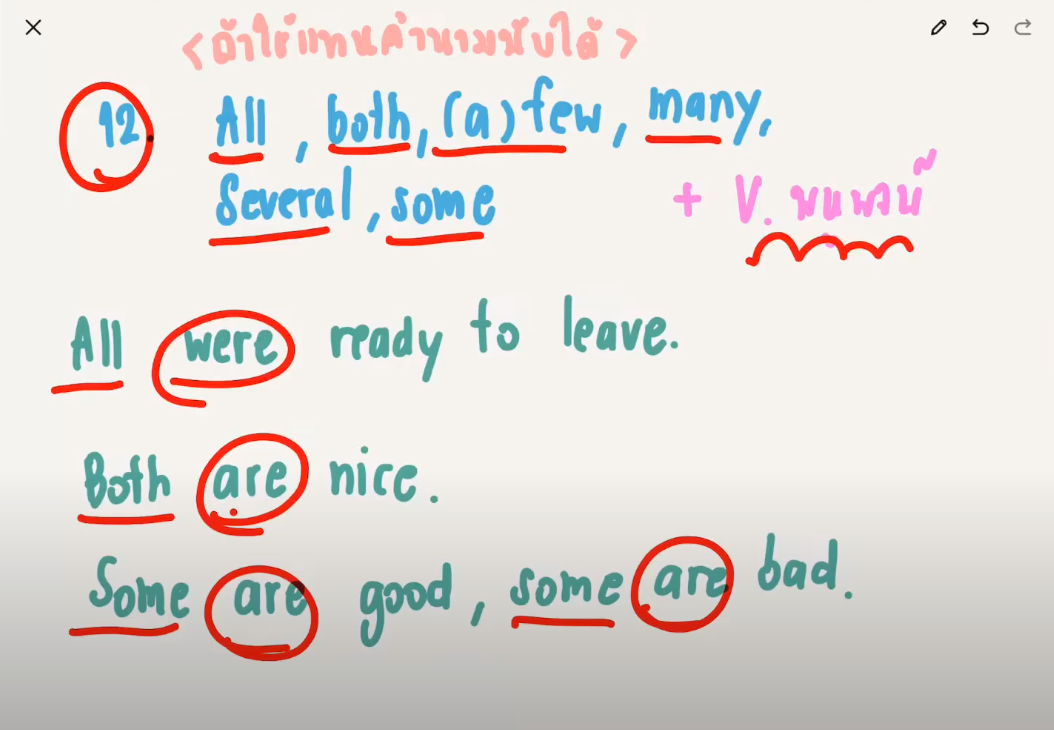 <ถ้าใช้แทนคำนามนับได้>
12. All, both, (a) few, many,
Several, some + V. พหูพจน์
All were ready to leave.
Both are nice.
Some are good, some are bad.